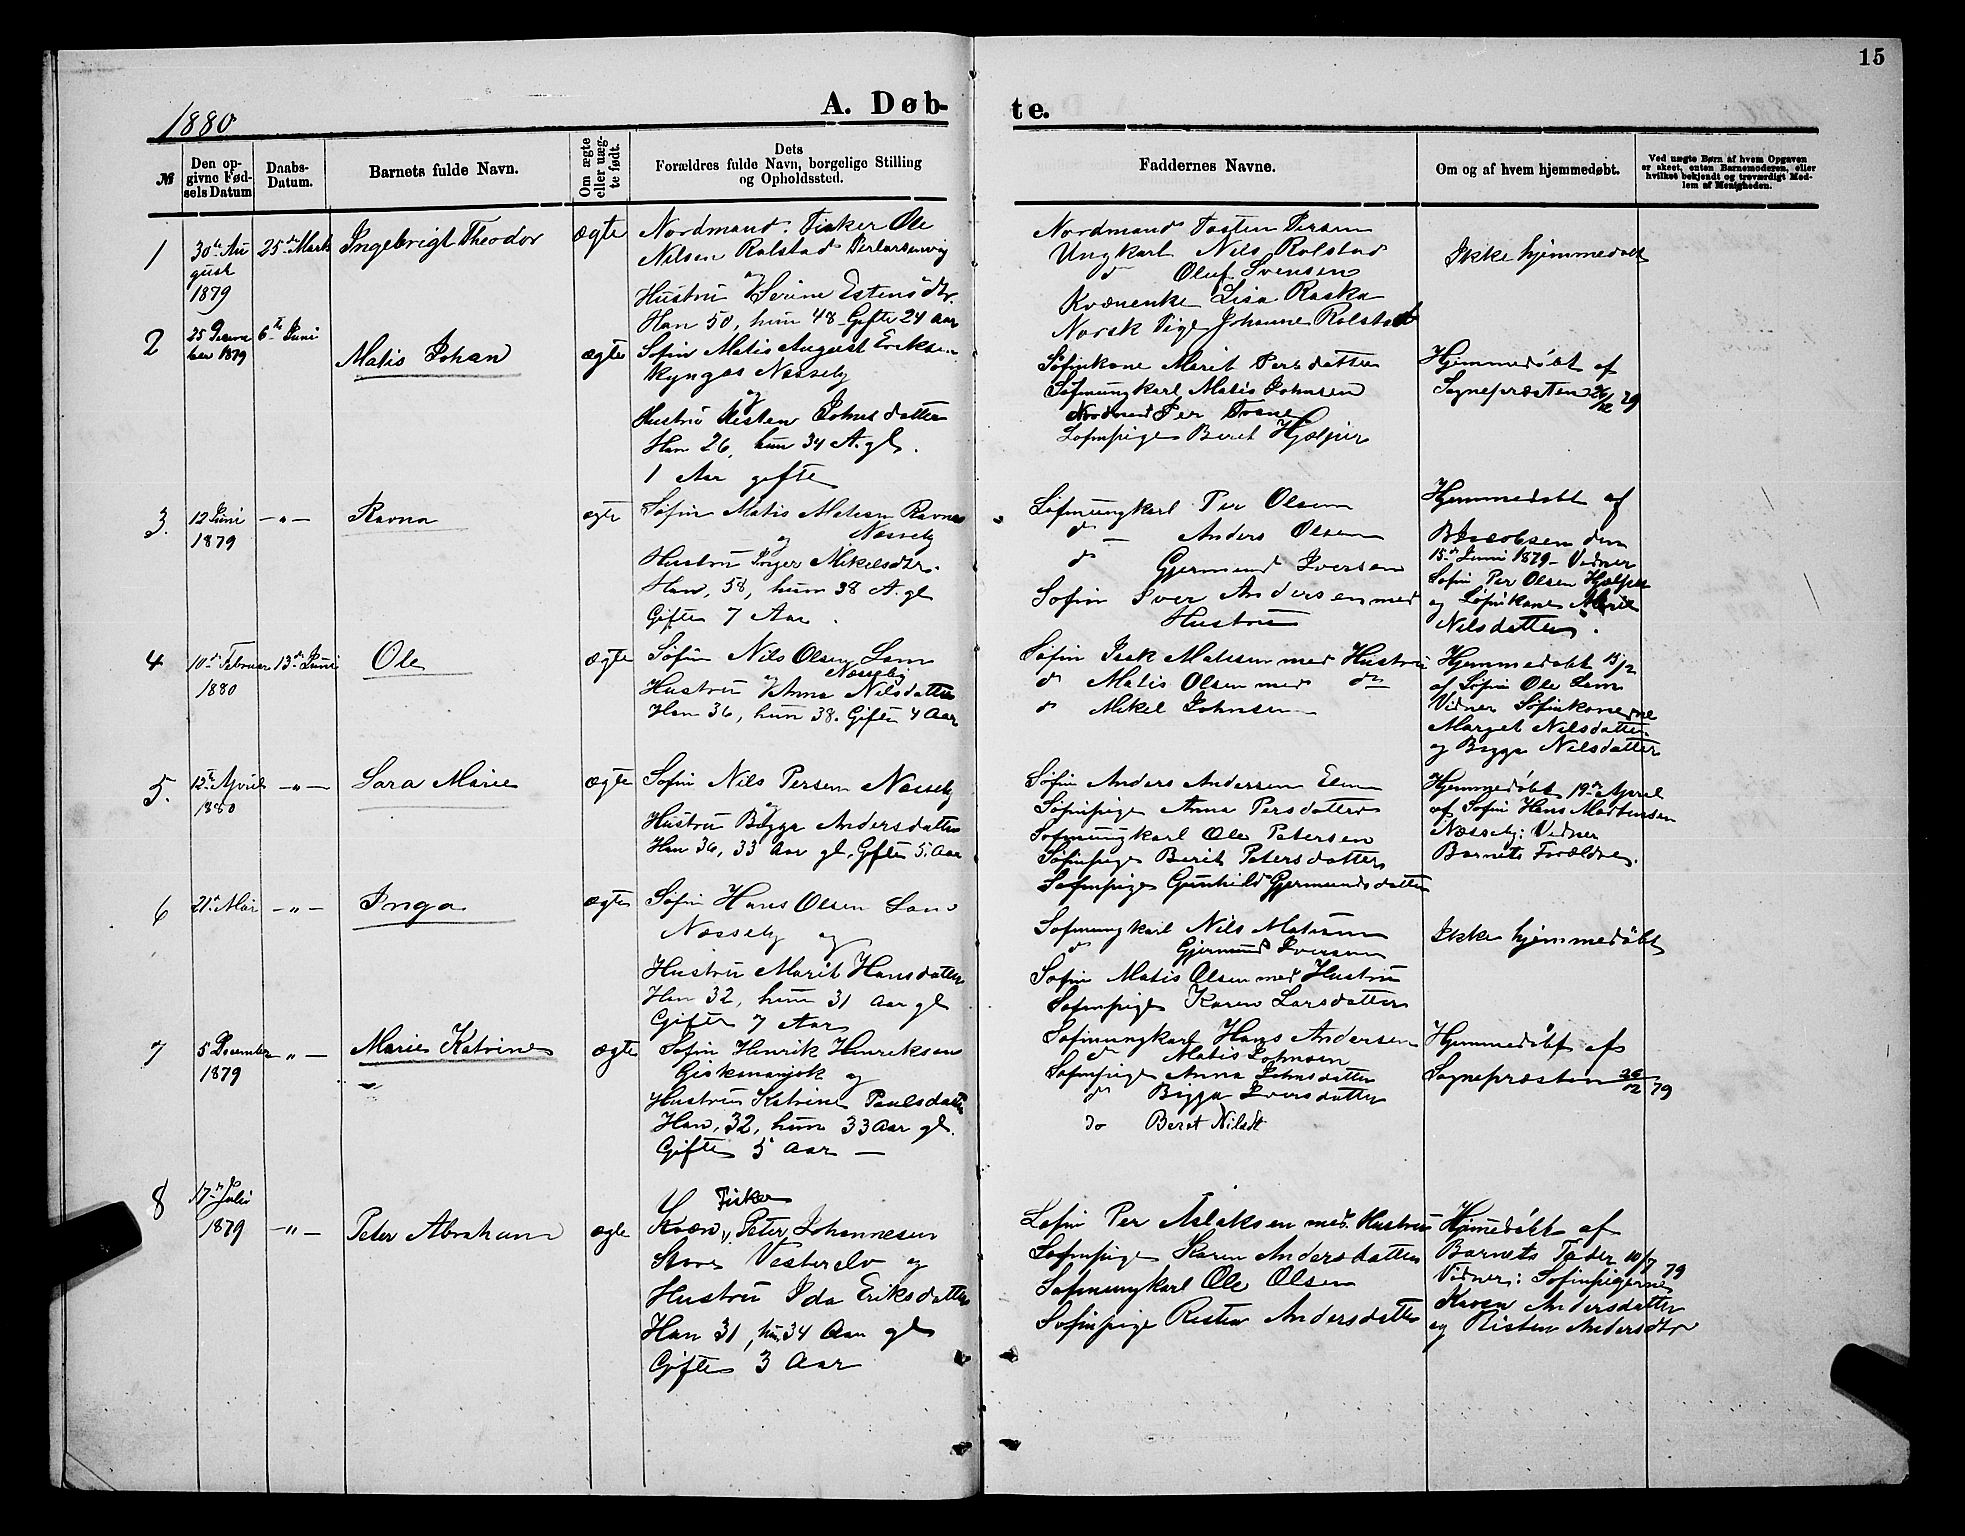 15
1880
A. Døb-
te.
№
Den op-
givne Fød-
sels Datum
Daabs-
Datum.
Barnets fulde Navn.
Om ægte
eller uæg-
te født.
Dets
Forældres fulde Navn, borgelige Stilling
og Opholdssted.
Faddernes Navne.
Om og af hvem hjemmedøbt.
Ved uægte Børn af hvem Opgaven
er skeet, enten Barnemoderen, eller
hvilket bekjendt og troværdigt Med-
lem af Menigheden.
1
30te Au
gust
1879
25de Marts
Ingebrigt Theodor
ægte
Nordmand. Fisker Ole
Nilsen Rolstad Perlarsenvig
Hustru Serine Estensdtr.
Han 50, hun 48 Gifte 24 Aar
Nordmand Tosten Persen
Ungkarl Nils Rolstad
do Oluf Svensen
Kvænenke Lisa Raska
Norsk Pige Johanne Rolstad
Ikke hjemmedøbt
2
25 Decem
ber 1879
6te Juni
Matis Johan
ægte
Søfin Matis August Eriksen
Kynges Næsseby
og
Hustru Risten Johnsdatter
Han 26, hun 34 A. gl.
1 Aar gifte
Søfinkone Marit Persdatter
Søfinungkarl Matis Johnsen
Nordmand Per Trane
Søfinpige Beret Hjelper
Hjemmedøbt af
Sognepræsten 26/12 79
3.
12 Juni
1879
-"-
Ravna
ægte
Søfin Matis Matisen Ravna
og Næsseby
Hustru Inger Mikelsdtr.
Han, 58, hun 38 A. gl
Gifte 7 Aar.
Søfinungkarl Per Olsen
do - Anders Olsen
do Gjermund Iversen
Søfin Iver Andersen med
Hustru
Hjemmedøbt af
B. Jacobsen den
15de Juni 1879 - Vidner
Søfin Per Olsen Hjelper
og Søfinkone Marie
Nilsdatter.
4
10de Februar
1880
13de Juni
Ole
ægte
Søfin Nils Olsen Lam
Næsseby
Hustru Anna Nilsdatter
Han 36, hun 38. Gifte 4 Aar
Søfin Isak Matisen med Hustru
do Matis Olsen med do
do Mikel Johnsen
Hjemmedøbt 15/2
af Søfin Ole Lam
Vidner Søfinkonerne
Marget Nilsdatter
og Bigga Nilsdatter
5.
12te April
1880
-"-
Sara Marie
ægte
Søfin Nils Persen Næsseby
og
Hustru Bigga Andersdatter
Han 36, 33 Aar gl, Gifte 5. Aar
Søfin Anders Andersen
Søfinpige Anna Persdatter
Søfinungkarl Ole Petersen
Søfinpige Berit Petersdatter
Søfinpige Gunhild Gjermundsdatter
Hjemmedøbt 19de April
af Søfin Hans Mortensen
Næsseby: Vidner
Barnets Forældre.
6
21de Mai
-"-
Inga
ægte
Søfin Hans Olsen Lam
Næsseby og
Hustru Marit Hansdatter
Han 32, hun 31 Aar gl
Gifte 7 Aar
Søfinungkarl Nils Matisen
do Gjermund Iversen
Søfin Matis Olsen med Hustru
Søfinpige Karen Larsdatter
Ikke hjemmedøbt
7
5 December
1879
-"-
Marie Katrine
ægte
Søfin Henrik Henriksen
Giskmanjok og
Hustru Katrine Poulsdatter
Han, 32, hun 33 Aar gl.
Gifte 5 Aar —
Søfinungkarl Hans Andersen
do Matis Johnsen
Søfinpige Anna Johnsdatter
do Bigga Iversdatter
do Beret Nilsdt
Hjemmedøbt af
Sognepræsten 26/12 79
8
17de Juli
1879
-"-
Peter Abraham
ægte
Fisker
Kvæn Peter Johannesen
Store Vesterelv og
Hustru Ida Eriksdatter
Han 31, hun 34 Aar gl
Gifte 3 Aar
Søfin Per Aslaksen med. Hustru
Søfinpige Karen Andersdatter
Søfinungkarl Ole Olsen
Søfinpige Risten Andersdatter
Hjemmedøbt af
Barnets Fader
Vidner: Søfinpigerne
Karen Andersdatter
og Risten Andersdtr